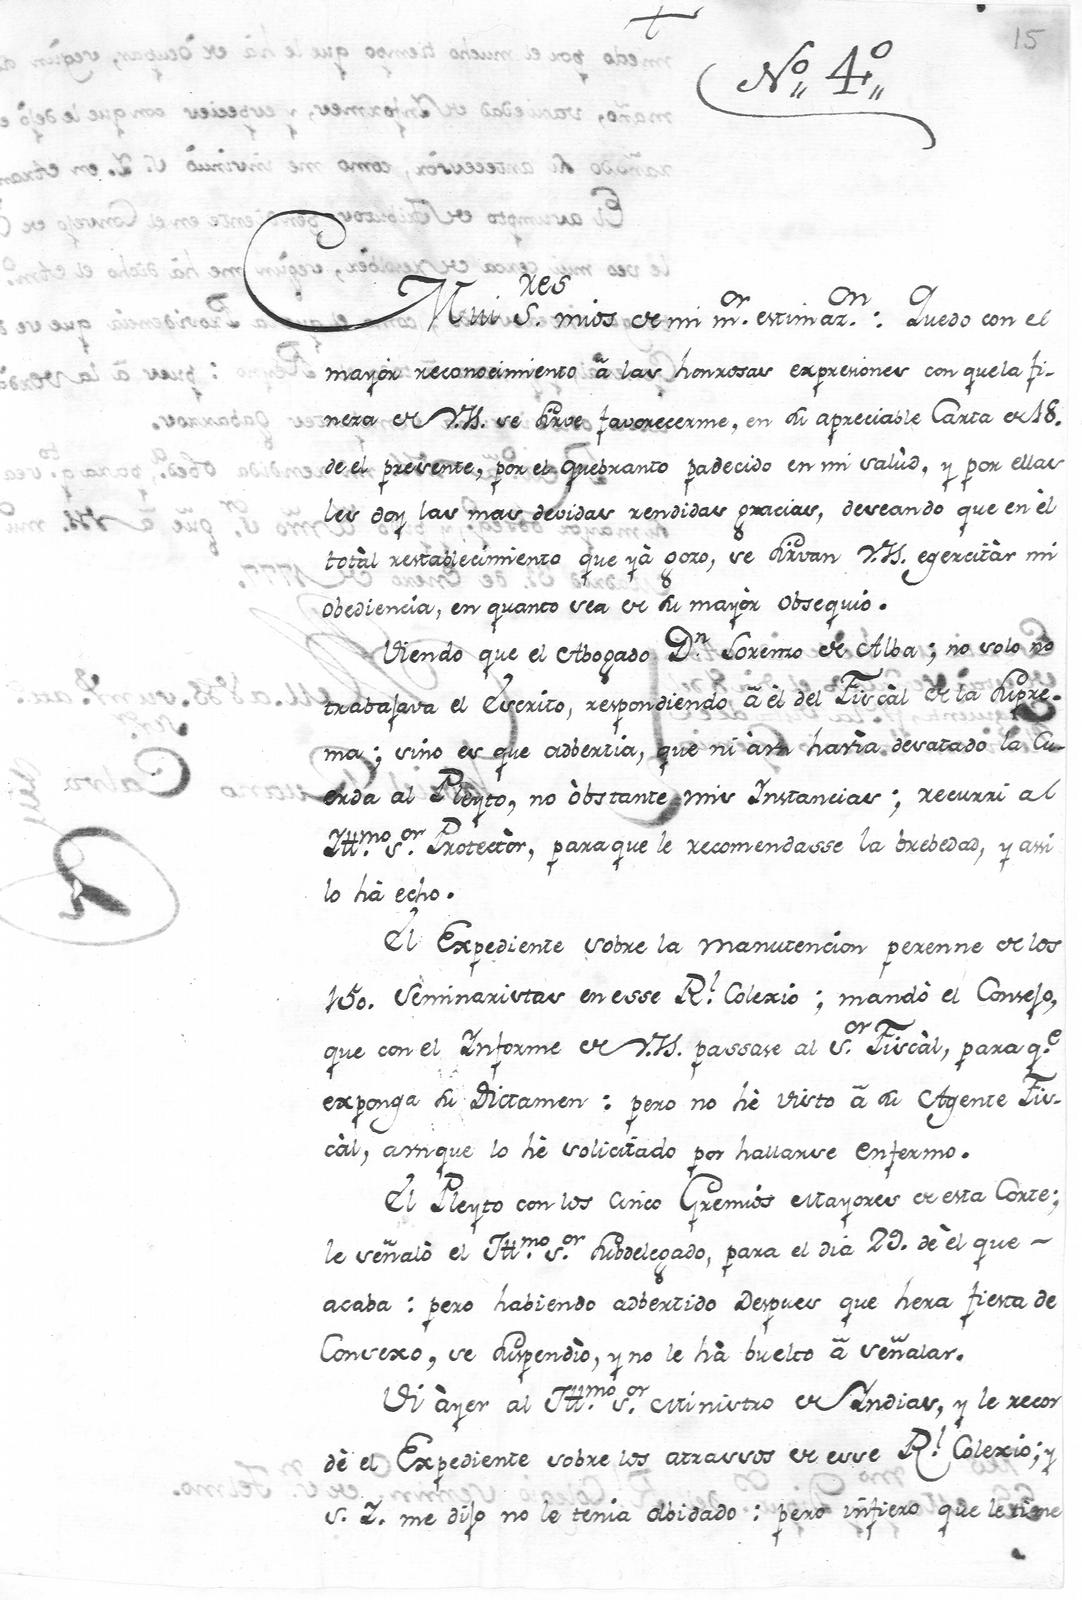 15
Nº 4º
Mui S.res mios de mi m.or estimaz.on: Quedo con el
mayòr reconocimiento â las honrosas expresiones con que la fi-
neza de V.SS. se sirve favorecerme, en su apreciable Carta de 18.
de el presente, por el quebranto padecido en mi salùd, y por ellas
les doy las mas devidas rendidas gracias, deseando que en èl
totàl restablecimiento que yà gozo, se sirvan V.SS. egercitàr mi
obediencia, en quanto sea de su mayòr obsequio.
Viendo que el Abogado D.n Lorenzo de Alba; no solo no
trabajava el Escrito, respondiendo â èl del Fiscàl de la Supre-
ma; sino es que adbertia, que ni àun havia desatado la Cu-
erda al Pleyto, no òbstante mis Instancias; recurri al
Ill.mo S.or Protectòr, para que le recomendasse la brebedad, y assi
lo hà echo.
El Expediente sobre la manutencion perenne de los
150. Seminaristas en esse R.l Colexio; mandò el Consejo,
que con el Informe de V.SS. passase al S.or Fiscàl, para q.e
exponga su Dictamen: pero no hè visto â su Agente Fis-
càl, aunque lo hè solicitado por hallarse enfermo.
El Pleyto con los cinco Gremios Mayores de esta Corte;
le señalò el Ill.mo S.or Subdelegado, para el dia 29. de èl que ~
acaba: pero habiendo adbertido Despues que hera fiesta de
Consexo, se suspendiò, y no le hà buelto â señalar.
Vi àyer al Ill.mo S.or Ministro de Indias, y le recor
dè el Expediente sobre los atrassos de esse R.l Colexio; y
S. I. me dijo no le tenia olbidado: pero infiero que le tiene